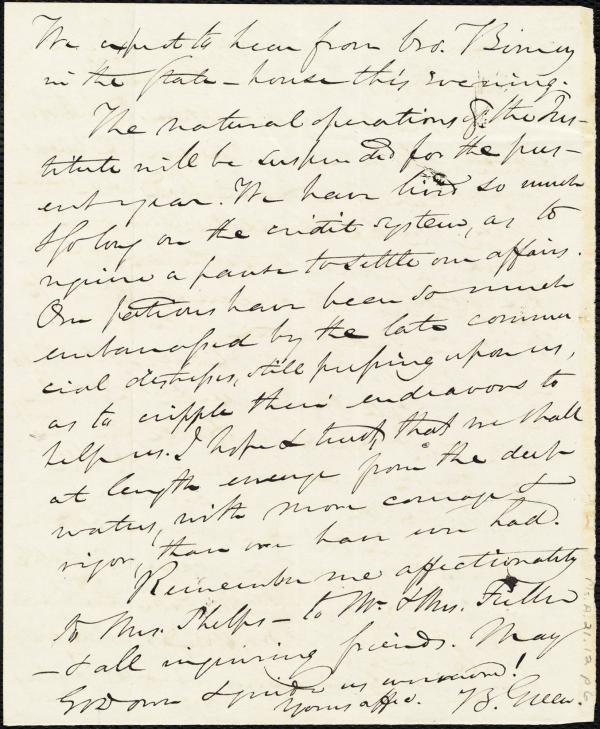 We expect to hear from bro. Birney
in the State-house this evening.
The natural operations of the Ins-
titute will be suspended for the pres-
ent year. We have lived so much
& so long on the credit system, as to
require a pause to settle our affairs.
Our patrons have been so much
embarrassed by the late commer
cial distresses, still pressing upon us,
as to cripple their endeavors to
help us. I hope & trust, that we shall
at length emerge from the deep
waters, with more courage &
vigor, than we have ever had.
Remember me affectionately
to Mrs. Phelps - to Mr. & Mrs. Fuller
- & all inquiring friends. May
God own & guide us evermore!
Yours affec. B. Green.
Ms.A.21.12 p.6